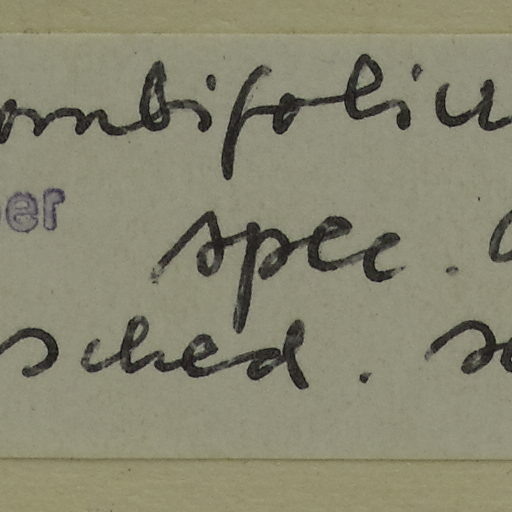 ombifoliu
er
spec.
sched. s